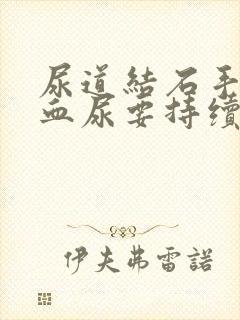 尿道結石手
血尿要持續
伊夫弗雷諾